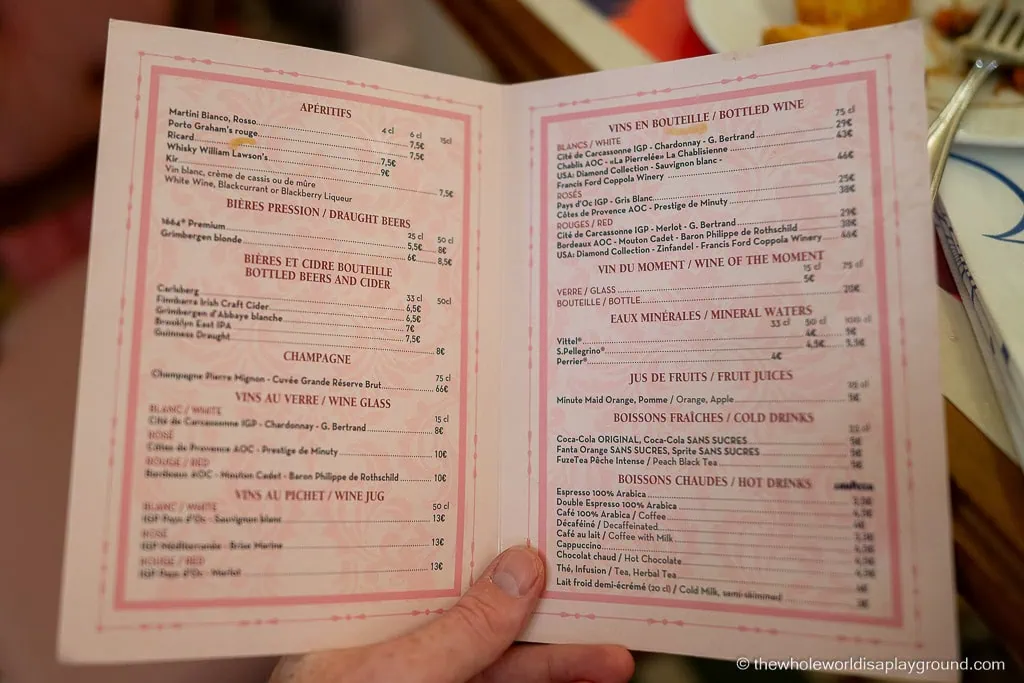 APÉRITIFS
4 cl 6 cl 15cl
Martini Bianco, Rosso 7,5€
Porto Graham's rouge 7,5€
Ricard 7,5€
Whisky William Lawson's 9€
Kir 7,5€
Vin blanc, crème de cassis ou de mûre
White Wine, Blackcurrant or Blackberry Liqueur
BIÈRES PRESSION / DRAUGHT BEERS
25 cl 50 cl
1664® Premium 5,5€ 8€
Grimbergen blonde 6€ 8,5€
BIÈRES ET CIDRE BOUTEILLE
BOTTLED BEERS AND CIDER
33 cl 50cl
Carlsberg 6,5€
Finnbarra Irish Craft Cider 6,5€
Grimbergen d'Abbaye blanche 7€
Brooklyn East IPA 7,5€
Guinness Draught 8€
CHAMPAGNE
75 cl
Champagne Pierre Mignon - Cuvée Grande Réserve Brut 66€
VINS AU VERRE / WINE GLASS
15 cl
BLANC / WHITE
Cité de Carcassonne IGP - Chardonnay - G. Bertrand 8€
ROSÉ
Côtes de Provence AOC - Prestige de Minuty 10€
ROUGE / RED
Bordeaux AOC - Mouton Cadet - Baron Philippe de Rothschild 10€
VINS AU PICHET / WINE JUG
50 cl
BLANC / WHITE
IGP Pays d'Oc - Sauvignon blanc 13€
ROSÉ
IGP Méditerranée - Brise Marine 13€
ROUGE / RED
IGP Pays d'Oc - Merlot 13€
VINS EN BOUTEILLE / BOTTLED WINE
75 cl
BLANCS / WHITE
Cité de Carcassonne IGP - Chardonnay - G. Bertrand 29€
Chablis AOC - «La Pierrelée» La Chablisienne 43€
USA: Diamond Collection - Sauvignon blanc -
Francis Ford Coppola Winery 46€
ROSÉS
Pays d'Oc IGP - Gris Blanc 25€
Côtes de Provence AOC - Prestige de Minuty 38€
ROUGES / RED
Cité de Carcassonne IGP - Merlot - G. Bertrand 29€
Bordeaux AOC - Mouton Cadet - Baron Philippe de Rothschild 38€
USA: Diamond Collection - Zinfandel - Francis Ford Coppola Winery 46€
VIN DU MOMENT / WINE OF THE MOMENT
15 cl 75 cl
VERRE / GLASS 5€
BOUTEILLE / BOTTLE 20€
EAUX MINÉRALES / MINERAL WATERS
33 cl 50 cl 100 cl
Vittel® 4€ 5€
S.Pellegrino® 4,5€ 5,5€
Perrier® 4€
JUS DE FRUITS / FRUIT JUICES
Minute Maid Orange, Pomme / Orange, Apple 5€
BOISSONS FRAÎCHES / COLD DRINKS
Coca-Cola ORIGINAL, Coca-Cola SANS SUCRES 5€
Fanta Orange SANS SUCRES, Sprite SANS SUCRES 5€
FuzeTea Pêche Intense / Peach Black Tea 5€
BOISSONS CHAUDES / HOT DRINKS
Espresso 100% Arabica
Double Espresso 100% Arabica
Café 100% Arabica / Coffee
Décaféiné / Decaffeinated
Café au lait / Coffee with Milk
Cappuccino
Chocolat chaud / Hot Chocolate
Thé, Infusion / Tea, Herbal Tea
Lait froid demi-écrémé (20 cl) / Cold Milk, semi-skimmed
© thewholeworldisaplayground.com